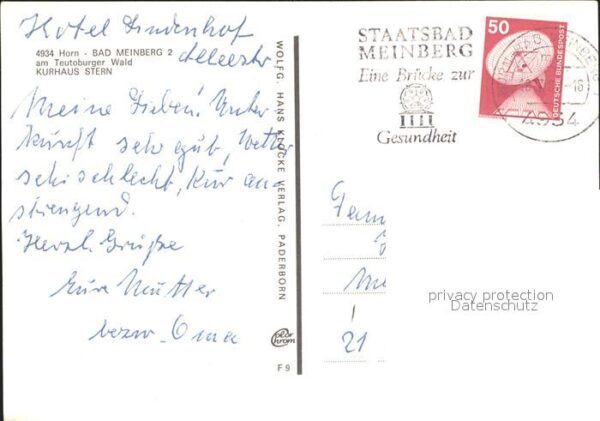 Hotel Lindenhof
4934 Horn - BAD MEINBERG 2
am Teutoburger Wald
KURHAUS STERN
Meine Lieben! Unter
kunft sehr gut, Wetter
sehr schlecht, Kur an
strengend.
Herzl. Grüße
Eure Mutter
bezw. Oma
WOLFG. HANS KLOCKE VERLAG, PADERBORN
color chrom
F 9
STAATSBAD
MEINBERG
Eine Brücke zur
Gesundheit
50
DEUTSCHE BUNDESPOST
-16
4934
Fam
21
privacy protection
Datenschutz